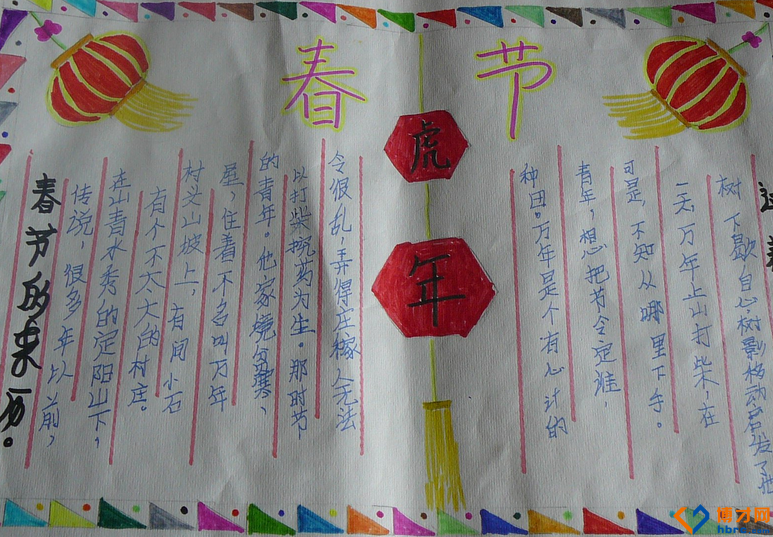 春节
虎年
春节的来历。
传说,很多年以前,
在山青水秀的定阳山下,
有个不太大的村庄。
村头山坡上,有间小石
屋,住着不名叫万年
的青年。他家境贫寒,
以打柴挖药为生。那时节
令很乱,弄得庄稼人无法
种田。万年是个有心计的
青年,想把节令定准,
可是,不知从哪里下手。
一天,万年上山打柴,在
树下歇息,树影移动启发了他
博才网